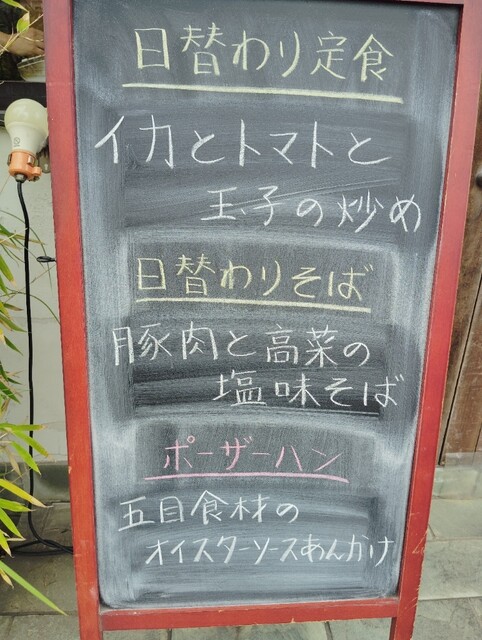 日替わり定食
イカとトマトと
玉子の炒め
日替わりそば
豚肉と高菜の
塩味そば
ポーザーハン
五目食材の
オイスターソースあんかけ